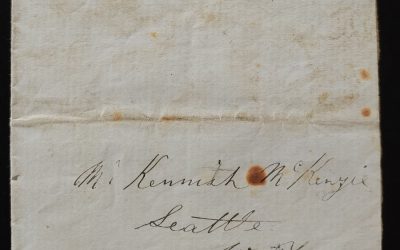 Mr Kennith McKenzie
Seattle